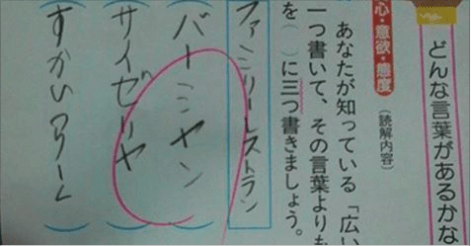 どんな言葉があるかな
心・意欲・態度
(読解内容)
あなたが知っている「広い
一つ書いて、その言葉よりも
を（　）に三つ書きましょう。
ファミリーレストラン
(バーミヤン)
(サイゼリヤ)
(すかいらーく)